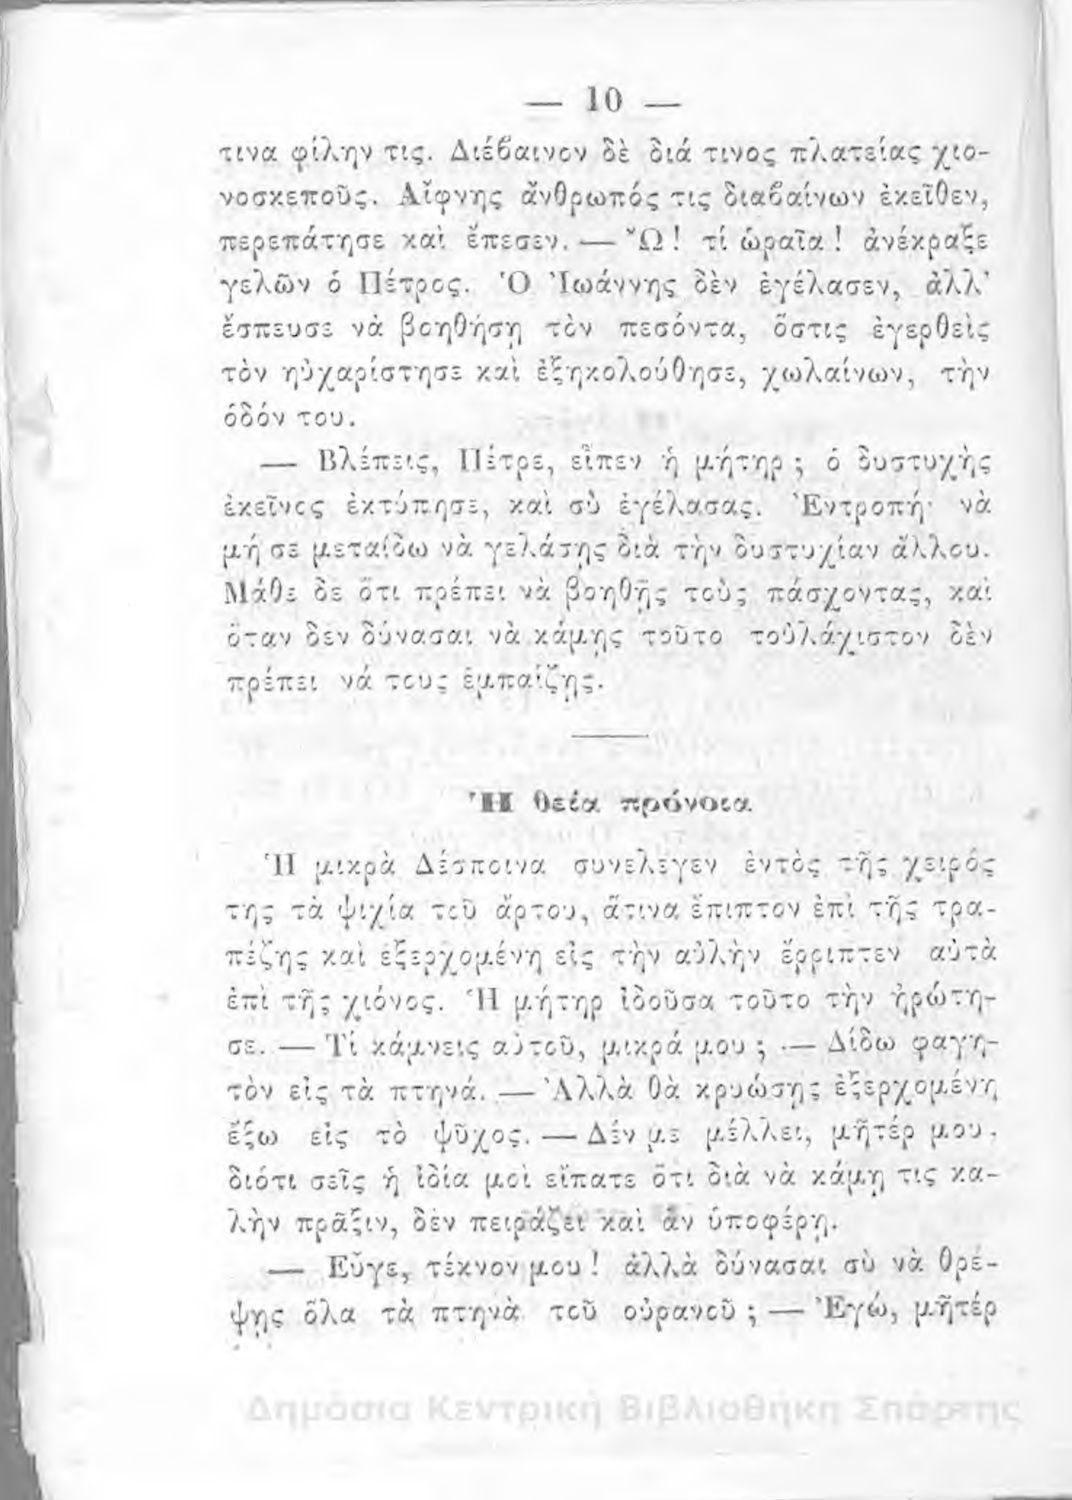 — 10 —
τινα φίλην τις. Διέβαινον δὲ διά τινος πλατείας χιο-
νοσκεποῦς. Αἴφνης ἄνθρωπός τις διαβαίνων ἐκεῖθεν,
περεπάτησε καὶ ἔπεσεν. — Ὢ! τί ὡραῖα! ἀνέκραξε
γελῶν ὁ Πέτρος. Ὁ Ἰωάννης δὲν ἐγέλασεν, ἀλλ’
ἔσπευσε νὰ βοηθήσῃ τὸν πεσόντα, ὅστις ἐγερθεὶς
τὸν ηὐχαρίστησε καὶ ἐξηκολούθησε, χωλαίνων, τὴν
ὁδόν του.
— Βλέπεις, Πέτρε, εἶπεν ἡ μήτηρ ; ὁ δυστυχὴς
ἐκεῖνος ἐκτύπησε, καὶ σὺ ἐγέλασας. Ἐντροπή· νὰ
μή σε μεταίδω νὰ γελάσῃς διὰ τὴν δυστυχίαν ἄλλου.
Μάθε δε ὅτι πρέπει νὰ βοηθῇς τοὺς πάσχοντας, καὶ
ὅταν δεν δύνασαι νὰ κάμῃς τοῦτο τοὐλάχιστον δὲν
πρέπει νά τους ἐμπαίζῃς.
Ἡ θεία πρόνοια
Ἡ μικρὰ Δέσποινα συνέλεγεν ἐντὸς τῆς χειρός
της τὰ ψιχία τοῦ ἄρτου, ἅτινα ἔπιπτον ἐπὶ τῆς τρα-
πέζης καὶ ἐξερχομένη εἰς τὴν αὐλὴν ἔρριπτεν αὐτὰ
ἐπὶ τῆς χιόνος. Ἡ μήτηρ ἰδοῦσα τοῦτο τὴν ἠρώτη-
σε. — Τί κάμνεις αὐτοῦ, μικρά μου ; — Δίδω φαγη-
τὸν εἰς τὰ πτηνά. — Ἀλλὰ θὰ κρυώσῃς ἐξερχομένη
ἔξω εἰς τὸ ψῦχος. — Δέν με μέλλει, μῆτέρ μου.
διότι σεῖς ἡ ἰδία μοὶ εἴπατε ὅτι διὰ νὰ κάμῃ τις κα-
λὴν πρᾶξιν, δὲν πειράζει καὶ ἂν ὑποφέρῃ.
— Εὖγε, τέκνον μου! ἀλλὰ δύνασαι σὺ νὰ θρέ-
ψῃς ὅλα τὰ πτηνὰ τοῦ οὐρανοῦ ; — Ἐγώ, μῆτέρ
Δημόσια Κεντρική Βιβλιοθήκη Σπάρτης